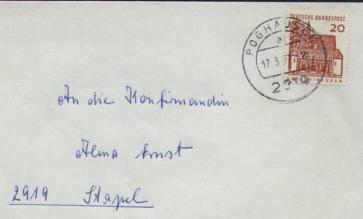 DEUTSCHE BUNDESPOST
20
POGHAUSEN
17.3.
An die Konfirmandin
Alma Ernst
2919 Stapel